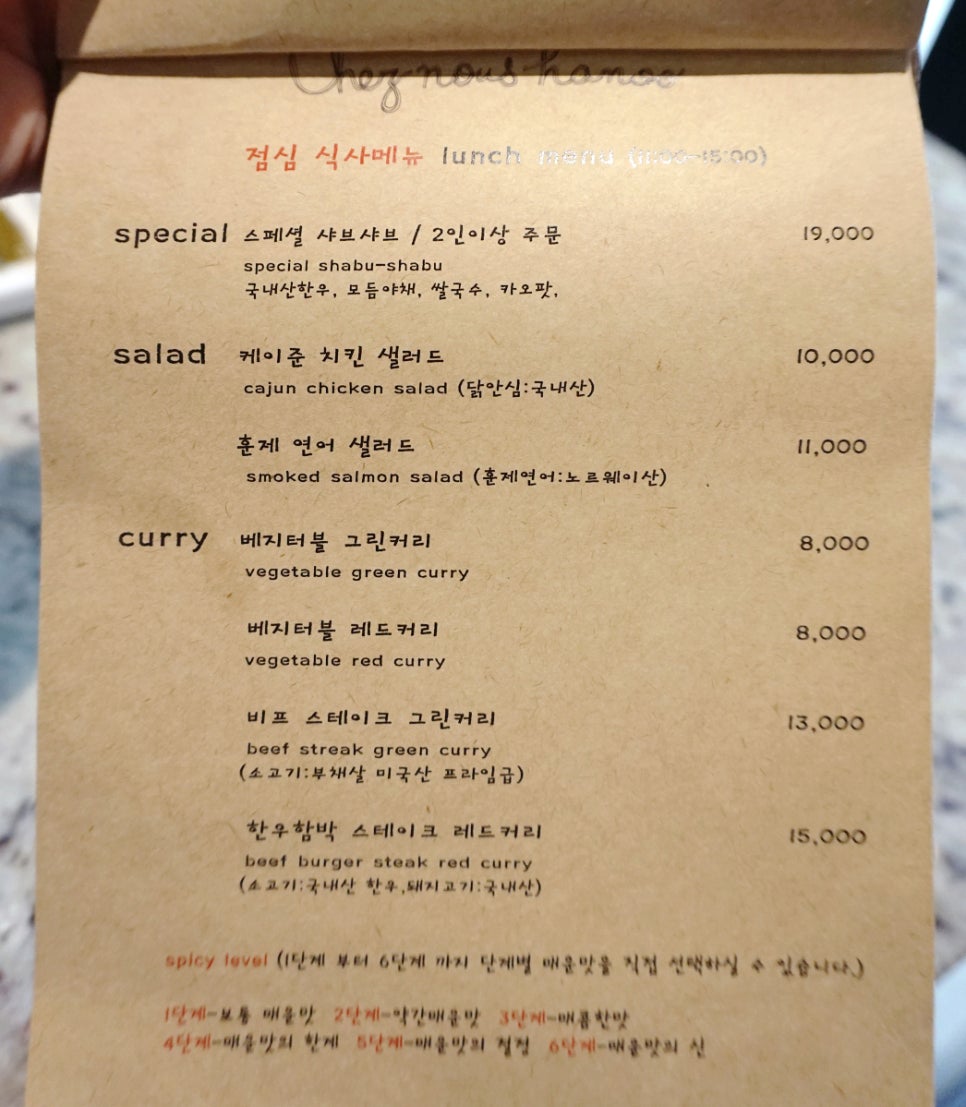 Chez nous hanoe
점심 식사메뉴 lunch menu (11:00~15:00)
special 스페셜 샤브샤브 / 2인이상 주문 19,000
special shabu-shabu
국내산한우, 모듬야채, 쌀국수, 카오팟,
salad 케이준 치킨 샐러드 10,000
cajun chicken salad (닭안심:국내산)
훈제 연어 샐러드 11,000
smoked salmon salad (훈제연어:노르웨이산)
curry 베지터블 그린커리 8,000
vegetable green curry
베지터블 레드커리 8,000
vegetable red curry
비프 스테이크 그린커리 13,000
beef streak green curry
(소고기:부채살 미국산 프라임급)
한우함박 스테이크 레드커리 15,000
beef burger steak red curry
(소고기:국내산 한우,돼지고기:국내산)
spicy level (1단계 부터 6단계 까지 단계별 매운맛을 직접 선택하실 수 있습니다.)
1단계-보통 매운맛 2단계-약간매운맛 3단계-매콤한맛
4단계-매운맛의 한계 5단계-매운맛의 절정 6단계-매운맛의 신